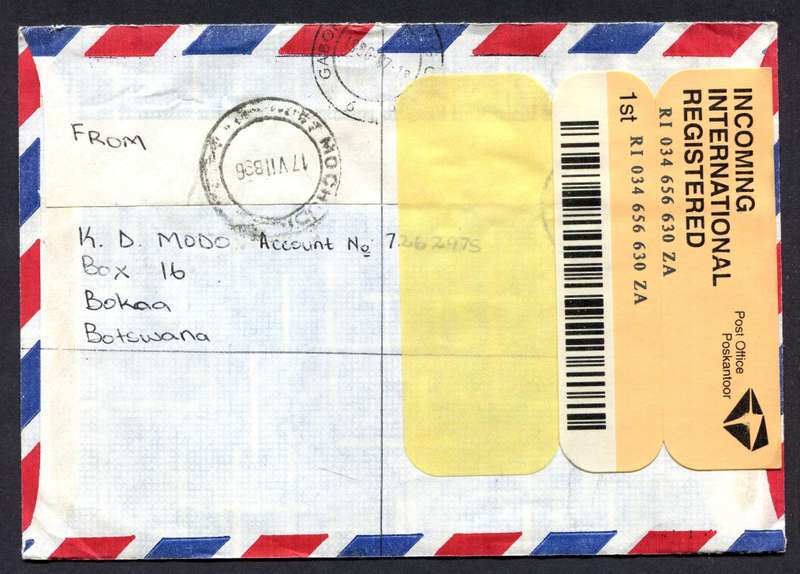 FROM
K. D. MODO Account No 7262475
Box 16
Bokaa
Botswana
17 VII 896
INCOMING
INTERNATIONAL
REGISTERED
RI 034 656 630 ZA
1st RI 034 656 630 ZA
Post Office
Poskantoor